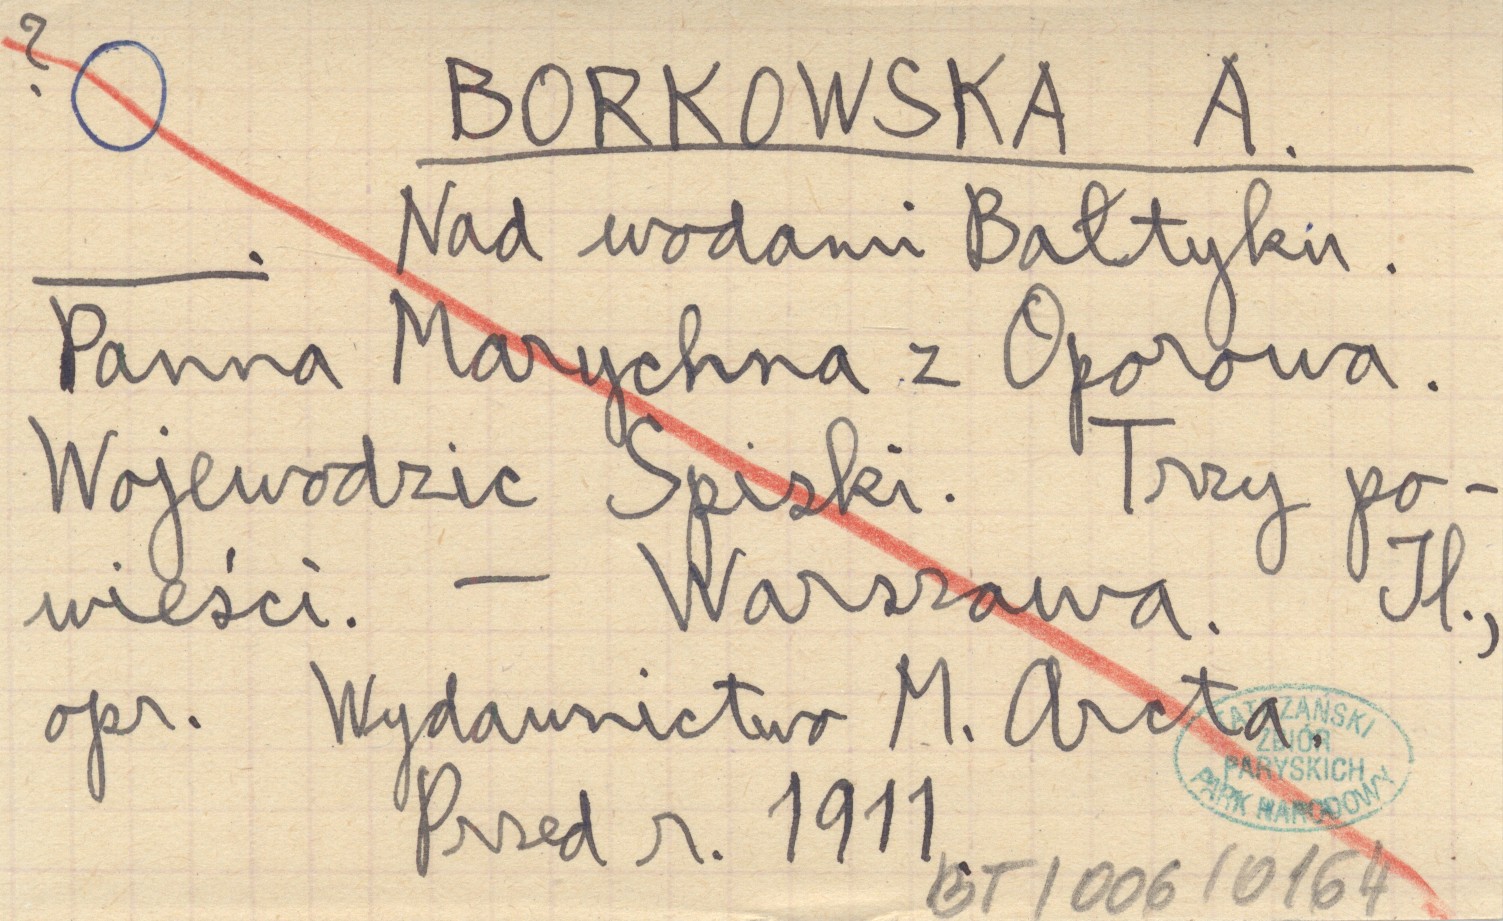 ?
BORKOWSKA A.
. Nad wodami Bałtyku.
Panna Marychna z Oporowa.
Wojewodzic Spiski. Trzy po-
wieści. — Warszawa. Il.,
opr. Wydawnictwo M. Arcta.
Przed r. 1911.
TATRZAŃSKI
ZBIÓR
PARYSKICH
PARK NARODOWY
BT/006/0164